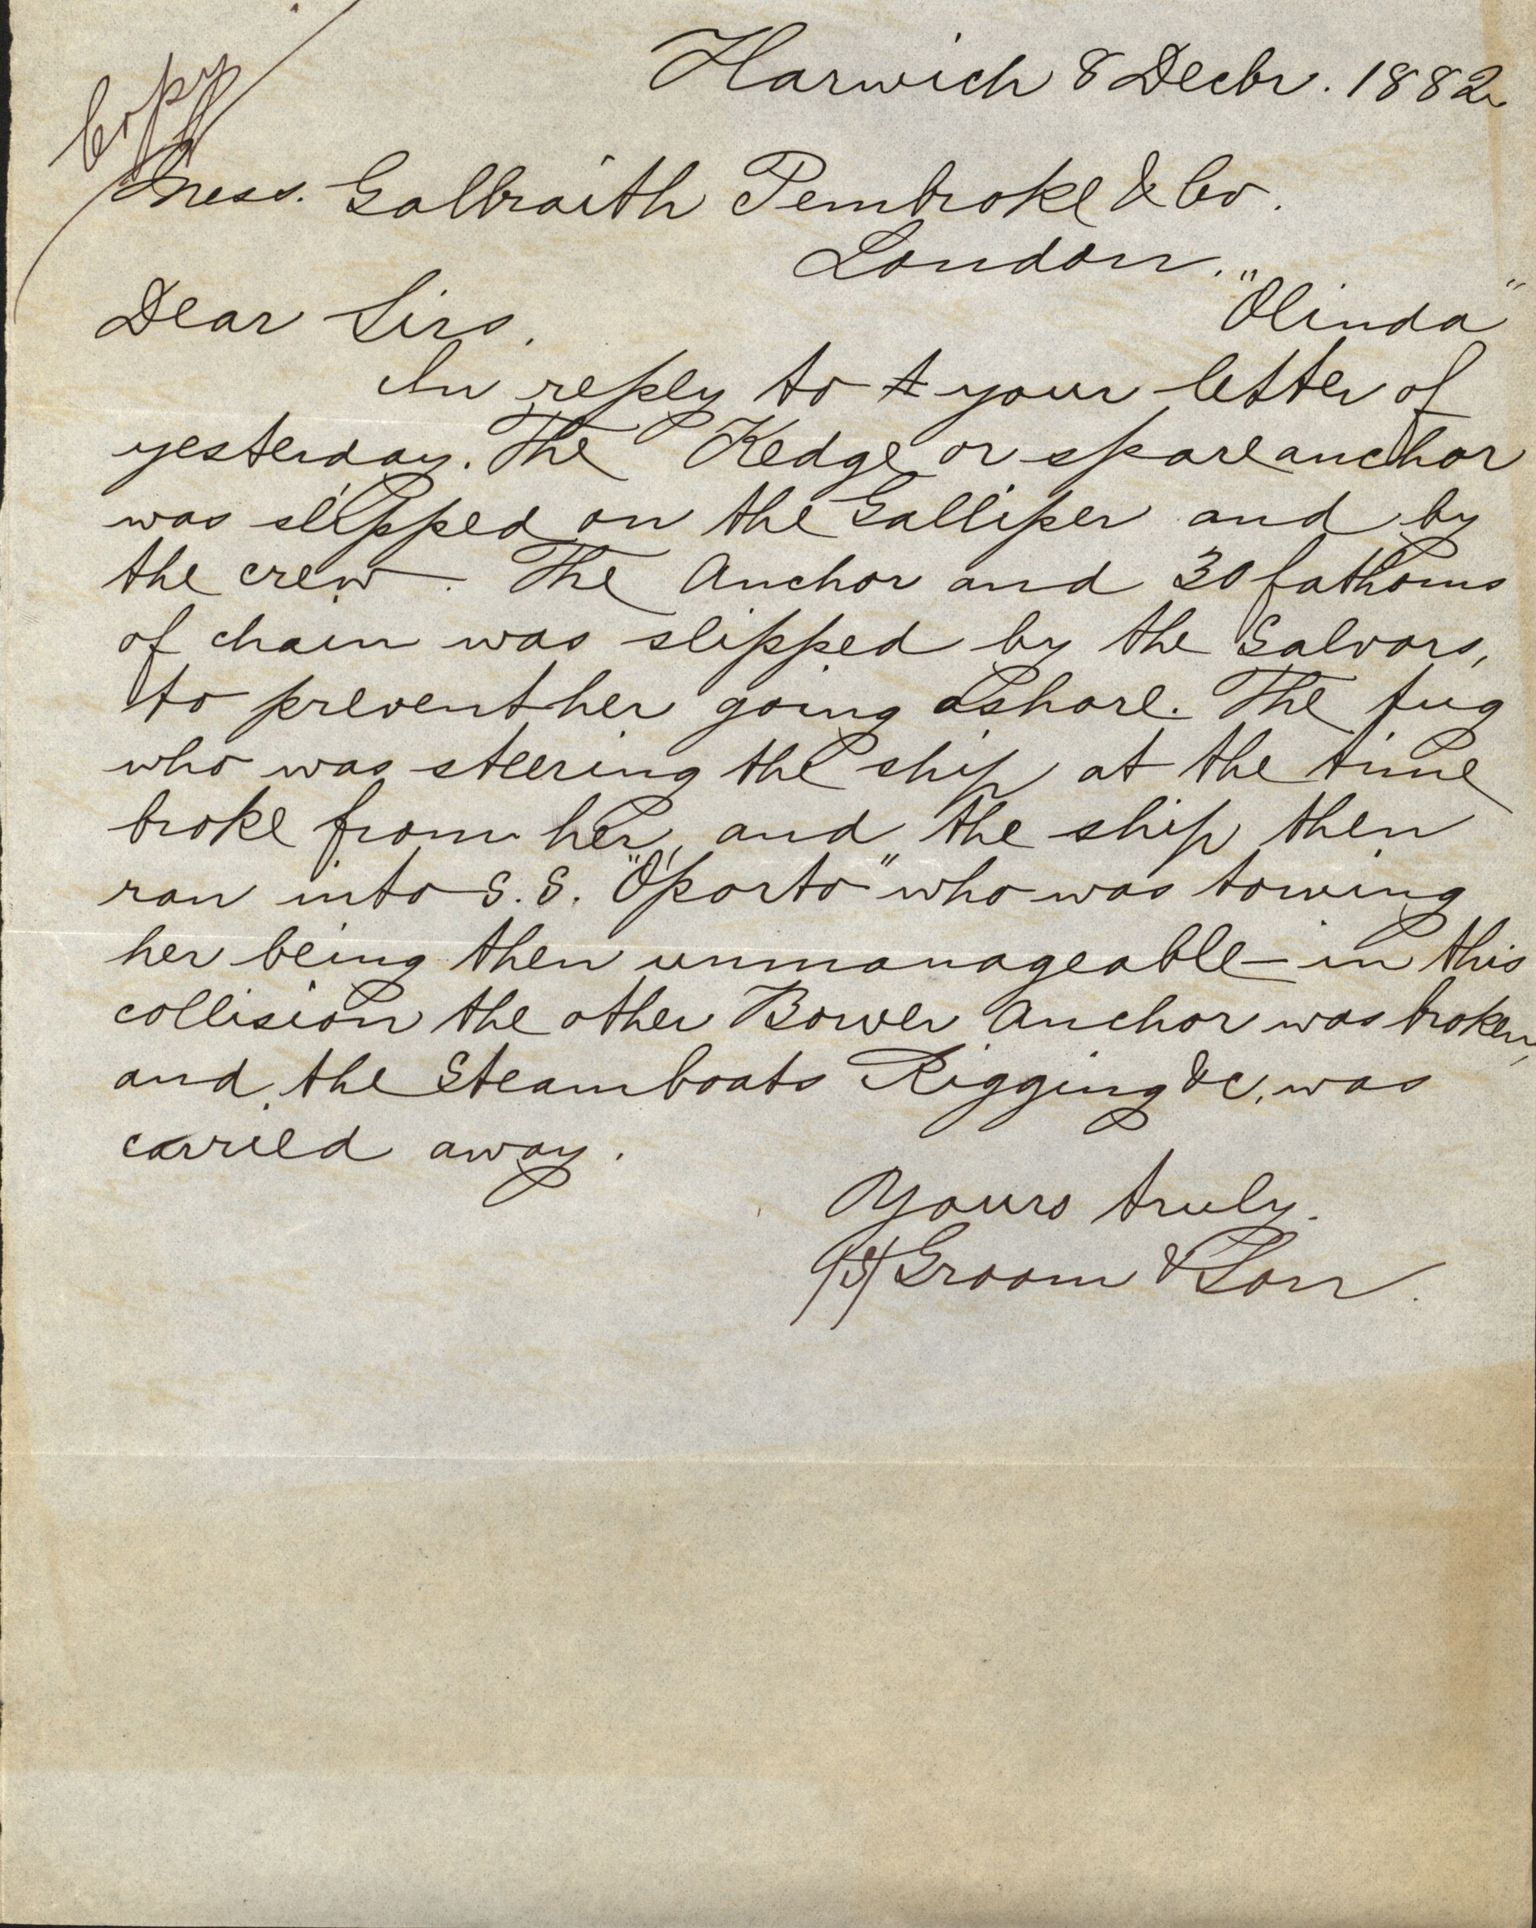 Copy
Harwich 8 Decbr. 1882
Mess. Galbraith Pembroke & Co.
London.
Dear Sirs, "Olinda"
In reply to t your letter of
yesterday. The Kedge or spare anchor
was slipped on the Galliper and by
the crew. The Anchor and 30 fathoms
of chain was slipped by the Salvors,
to prevent her going ashore. The tug
who was steering the ship at the time
broke from her, and the ship then
ran into S.S. "Oporto" who was towing
her being then unmanageable – in this
collision the other Bower Anchor was broken,
and the Steamboats Rigging &c, was
carried away.
Yours truly.
(S) Groom & Son.